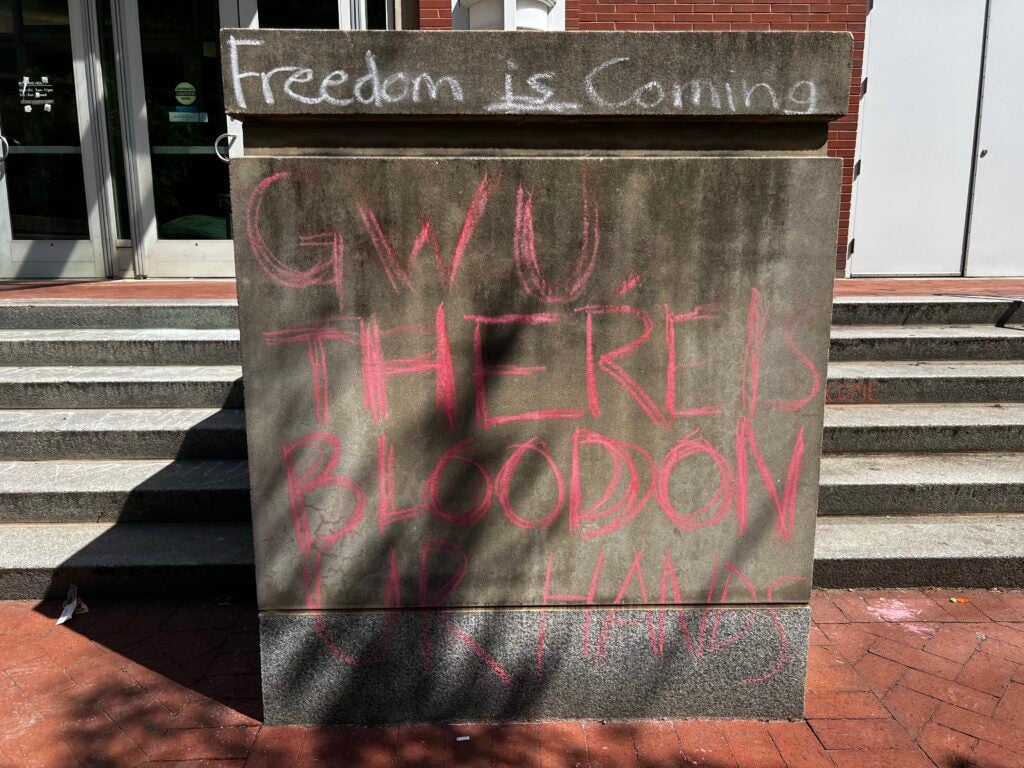 Freedom is Coming
GWU,
THERE IS
BLOOD ON
UR HANDS